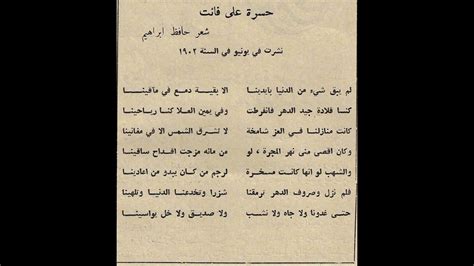 حسرة على فائت
شعر حافظ ابراهيم
نشرت في يونيو في السنة ١٩٠٢
لم يبق شيء من الدنيا بأيدينا الا بقية دمع في مآقينا
كنا قلادة جيد الدهر فانفرطت وفي يمين العلا كنا رياحينا
كانت منازلنا في العز شامخة لا تشرق الشمس الا في مغانينا
وكان اقصى منى نهر المجرة ، لو من مائه مزجت اقداح ساقينا
والشهب لو انها كانت مسخرة لرجم من كان يبدو من اعادينا
فلم نزل وصروف الدهر ترمقنا شزرا وتخدعنا الدنيا وتلهينا
حتى غدونا ولا جاه ولا نشب ولا صديق ولا خل يواسينا